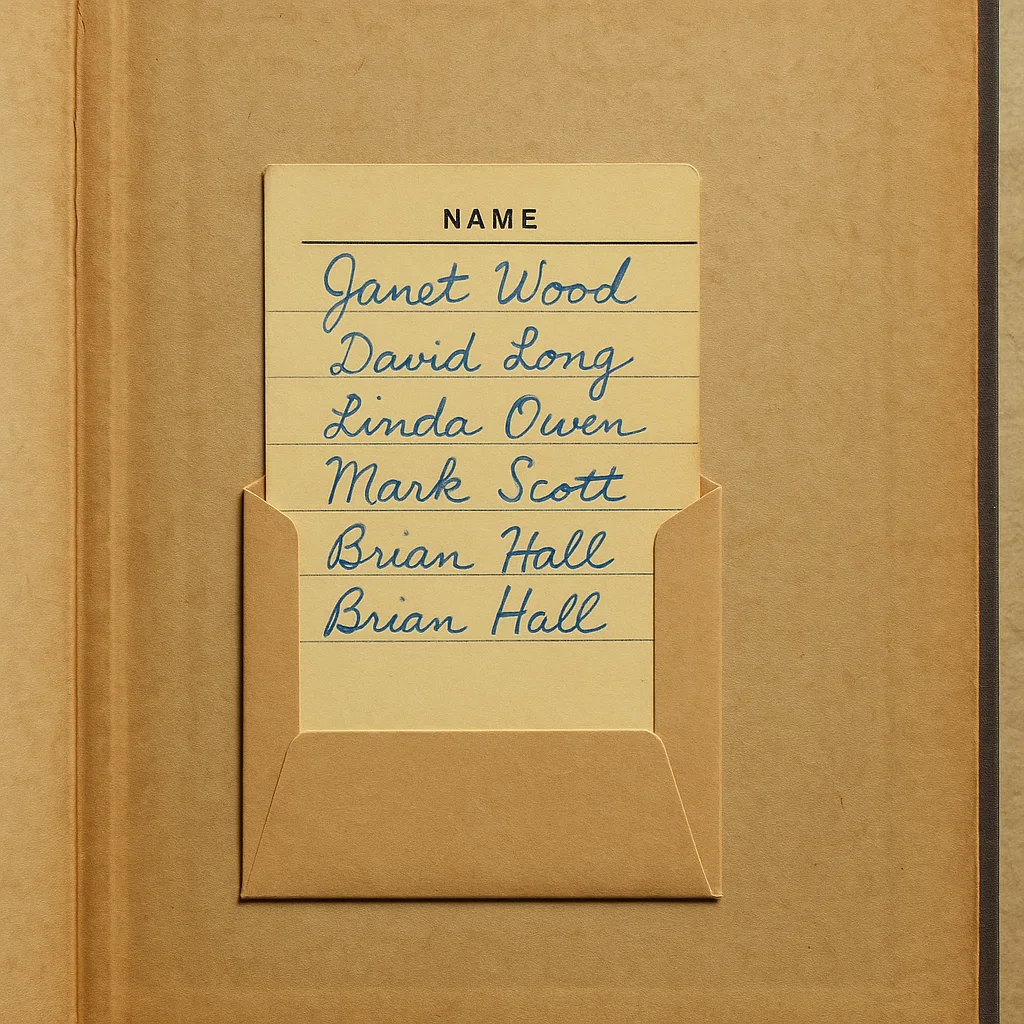 NAME
Janet Wood
David Long
Linda Owen
Mark Scott
Brian Hall
Brian Hall